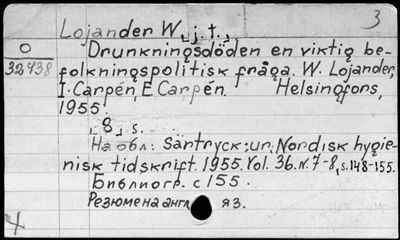 3
Lojander W. j. t.,
O
32738
Drunkningsdöden en viktig be-
folkningspolitisk fråga. W. Lojander,
I. Carpén, E Carpén. Helsingfors,
1955.
8 s.
На обл: Särtryck: ur. Nordisk hygie-
nisk tidskrift. 1955. Vol. 36. N. 7-8, s. 148-155.
Библиогр. с 155.
Резюме на англ яз.
4